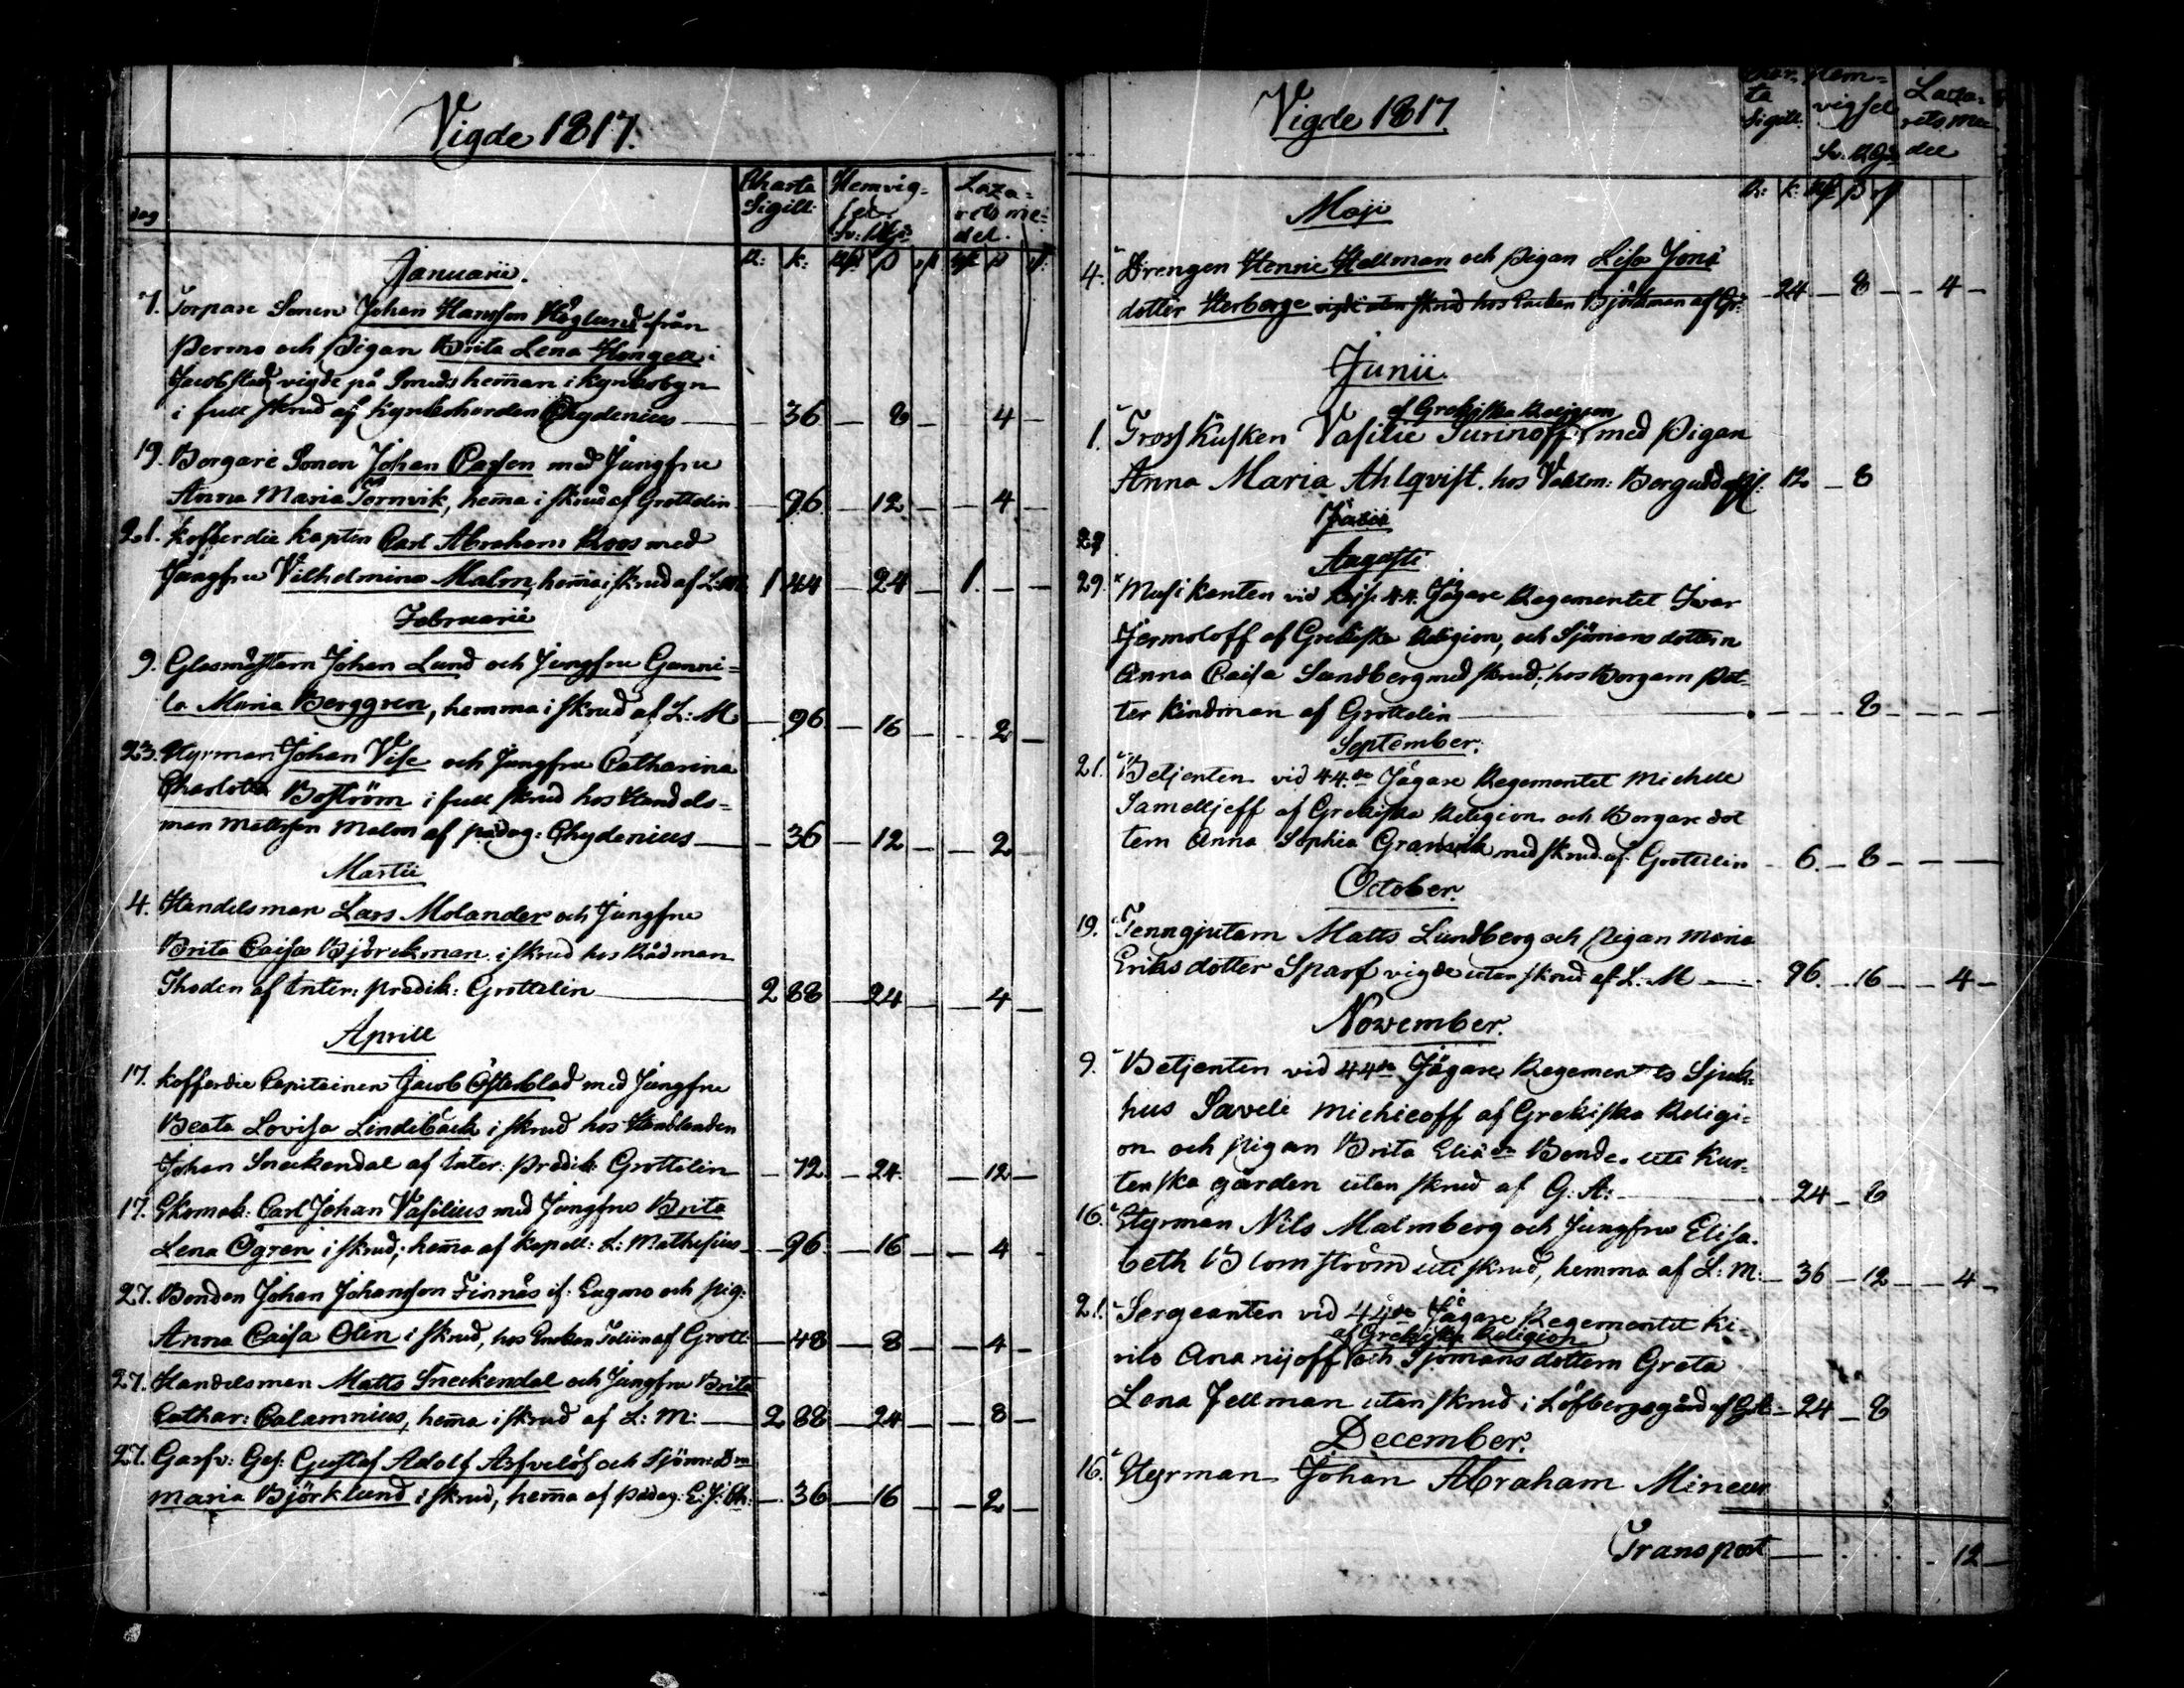 Vigde 1817.
dag
Charta Sigill: Hemvigsel. Sv: Rdgs Lazaretsmedel.
R: k: Rd ß
Januarii.
7. Torpare Sonen Johan Hansson Höglund från
Permo och Pigan Brita Lena Hongell i
Jacobstad, vigde på Smeds hem̄an i Kyrkobyn
i full skrud af Kyrkoherden Chydenius — 36 — 8 — 4 —
19. Borgare Sonen Johan Casén med Jungfru
Anna Maria Törnvik, hem̄a i skrud af Grottelin — 96 — 12 — 4 —
21. Kofferdie Kapten Carl Abraham Roos med
Jungfru Vilhelmina Malm, hem̄a i skrud af L: M: 1 44 — 24 — 1. — —
Februarii
9. Glasmästarn Johan Lund och Jungfru Gunni=
la Maria Berggren, hemma i skrud af L: M: — 96 — 16 — 2 —
23. Styrman Johan Vise och Jungfru Catharina
Charlotta Boström i full skrud hos Handels=
man Mattsson Malm af pädag: Chydenius — 36 — 12 — 2
Martii
4. Handelsman Lars Molander och Jungfru
Brita Caisa Björckman i skrud hos Rådman
Thodén af Inter: predik: Grottelin — 2 88 — 24 — 4 —
Aprill
17. Kofferdie Capitainen Jacob Österblad med Jungfru
Beata Lovisa Lindebäck i skrud hos Handlanden
Johan Sneckendal af Inter: Predik: Grottelin — 72 — 24 — 12 —
17. Skomak: Carl Johan Vasilius med Jungfru Brita
Lena Ögren i skrud, hem̄a af Kapell: L: Mathesius — 96 — 16 — 4
27. Bonden Johan Johansson Finnäs if: Eugmo och pig:
Anna Caisa Olin i skrud, hos Enckan af Grott: — 48 — 8 — 4 —
27. Handelsman Matts Sneckendal och Jungfru Brita
Cathar: Calamnius, hem̄a i skrud af L: M: — 2 88 — 24 — 8 —
27. Garfv: Ges: Gustaf Adolf Asfvelöf och Sjöm: Dn
Maria Björklund i skrud, hem̄a af Pädag: E: J: Ch: — 36 — 16 — 2 —
Vigde 1817.
Charta Sigill. Hemvigsel Sv: Rdgs Lazaretsmedel
R: k: Rd ß
Maji
4. Drengen Henric Hallman och Pigan Lisa Jons
dotter Herberge vigde utan skrud hos Enckan Björkman af Gr: — 24 — 8 — — 4 —
Junii.
af Grekiska Religion
1. Tross Kusken Vasilie Turinoff med Pigan
Anna Maria Ahlqvist. hos Vaktm: Berglund 12 — 8
Julii
29
Augusti
29. Musikanten vid 44. Jägare Regementet Ivar
Jermoloff af Grekiska Religion, och Sjömans dottern
Anna Caisa Sandberg med skrud; hos Borgarn Pet=
ter Kindman af Grottelin — — — 8 — — — —
September.
21. Betjenten vid 44.de Jägare Regementet Michell
Samelljeff af Grekiska Religion och Borgare dot
tern Anna Sophia Granvik med skrud af Grottelin — 6. — 8 — — —
October.
19. Tenngjutarn Matts Lundberg och Pigan Maria
Eriksdotter Sparf vigde utan skrud af L: M — 96. — 16 — — 4 —
November.
9. Betjenten vid 44de Jägare Regementets Sjuk=
hus Saveli Michieoff af Grekiska Religi=
on och pigan Brita Eliædr Bonde. uti Kur=
tenska gården utan skrud af G: A: — 24 — 8
16. Styrman Nils Malmberg och Jungfru Elisa=
beth Blomström uti skrud, hemma af L: M: — 36 — 12 — — 4 —
21. Sergeanten vid 44de Jägare Regementet Ki=
af Grekiska Religion
rilo Ananijoff och Sjömans dottern Greta
Lena Fellman utan skrud i Löfbergsgård af Grl: — 24 — 8
December.
16. Styrman Johan Abraham Mineur
Transport — 12 —